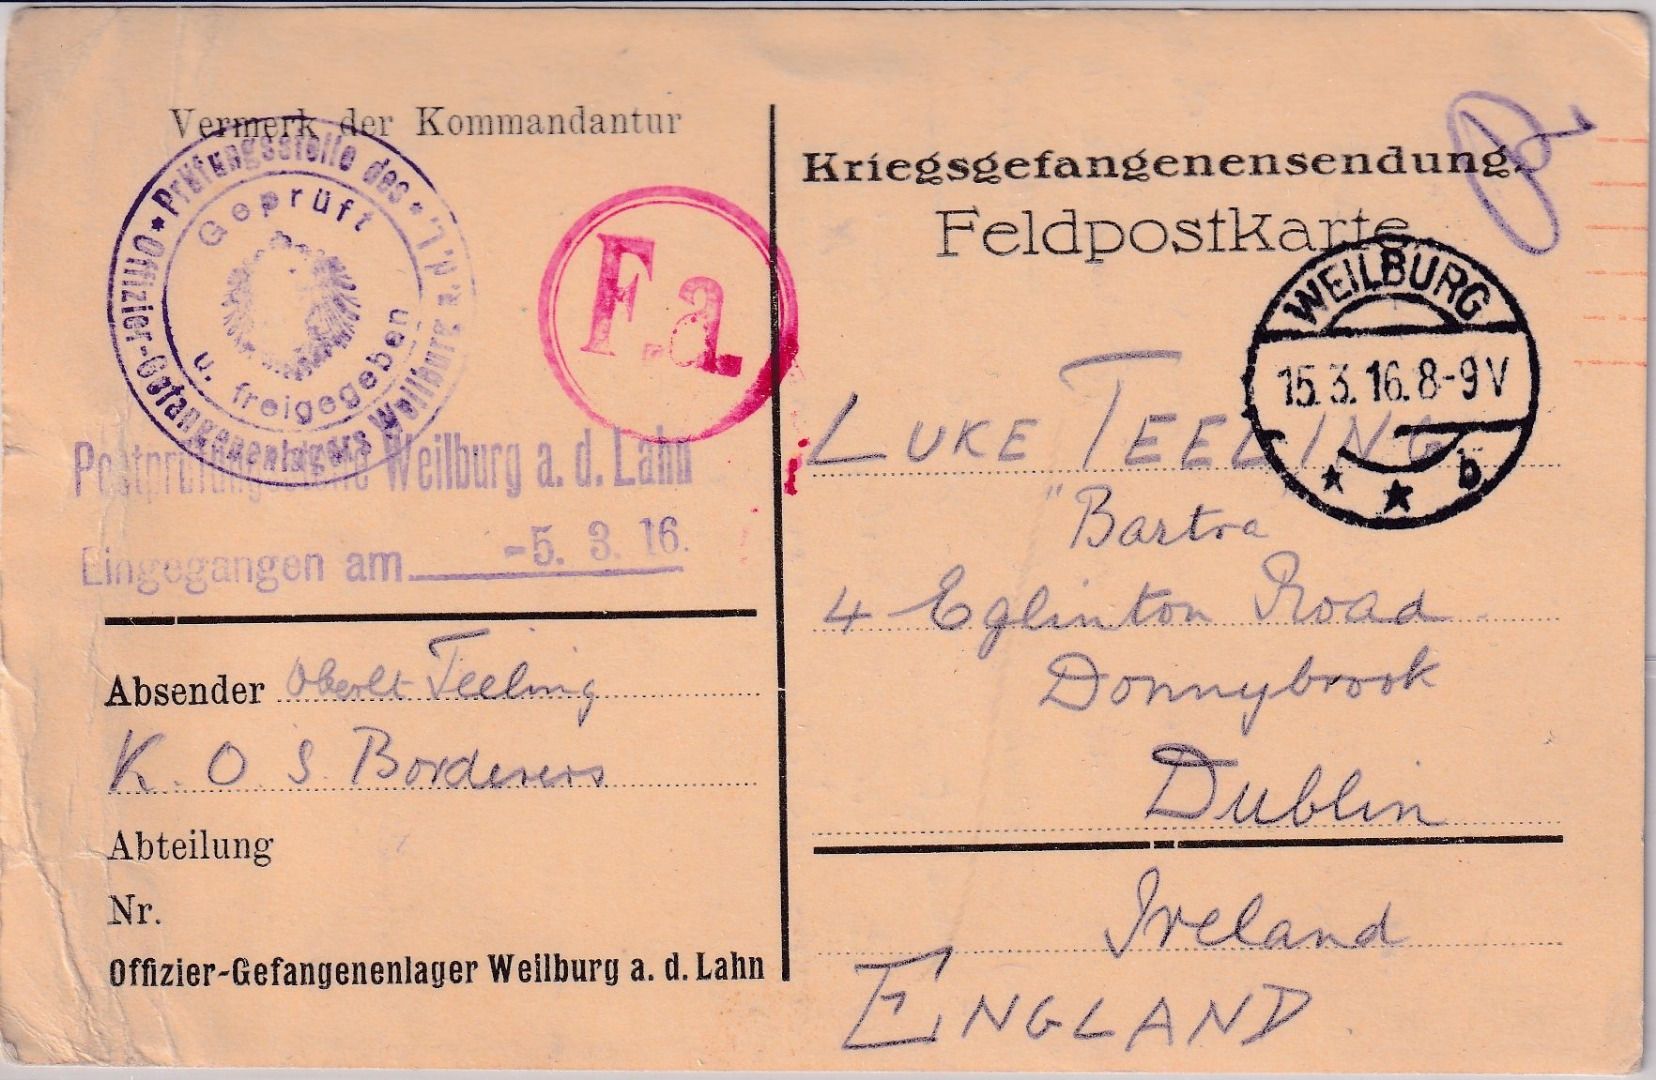 Vermerk der Kommandantur
Prüfungsstelle des
Offizier-Gefangenenlagers Weilburg a. d. L.
Geprüft
u. freigegeben
F.a.
Postprüfungsstelle Weilburg a. d. Lahn
Eingegangen am -5. 3. 16.
Absender Oberlt Teeling
K. O. S. Borderers
Abteilung
Nr.
Offizier-Gefangenenlager Weilburg a. d. Lahn
Kriegsgefangenensendung.
Feldpostkarte
WEILBURG
15.3.16.8-9V
b
LUKE TEELING
"Bartra"
4 Eglinton Road
Donnybrook
Dublin
Ireland
ENGLAND